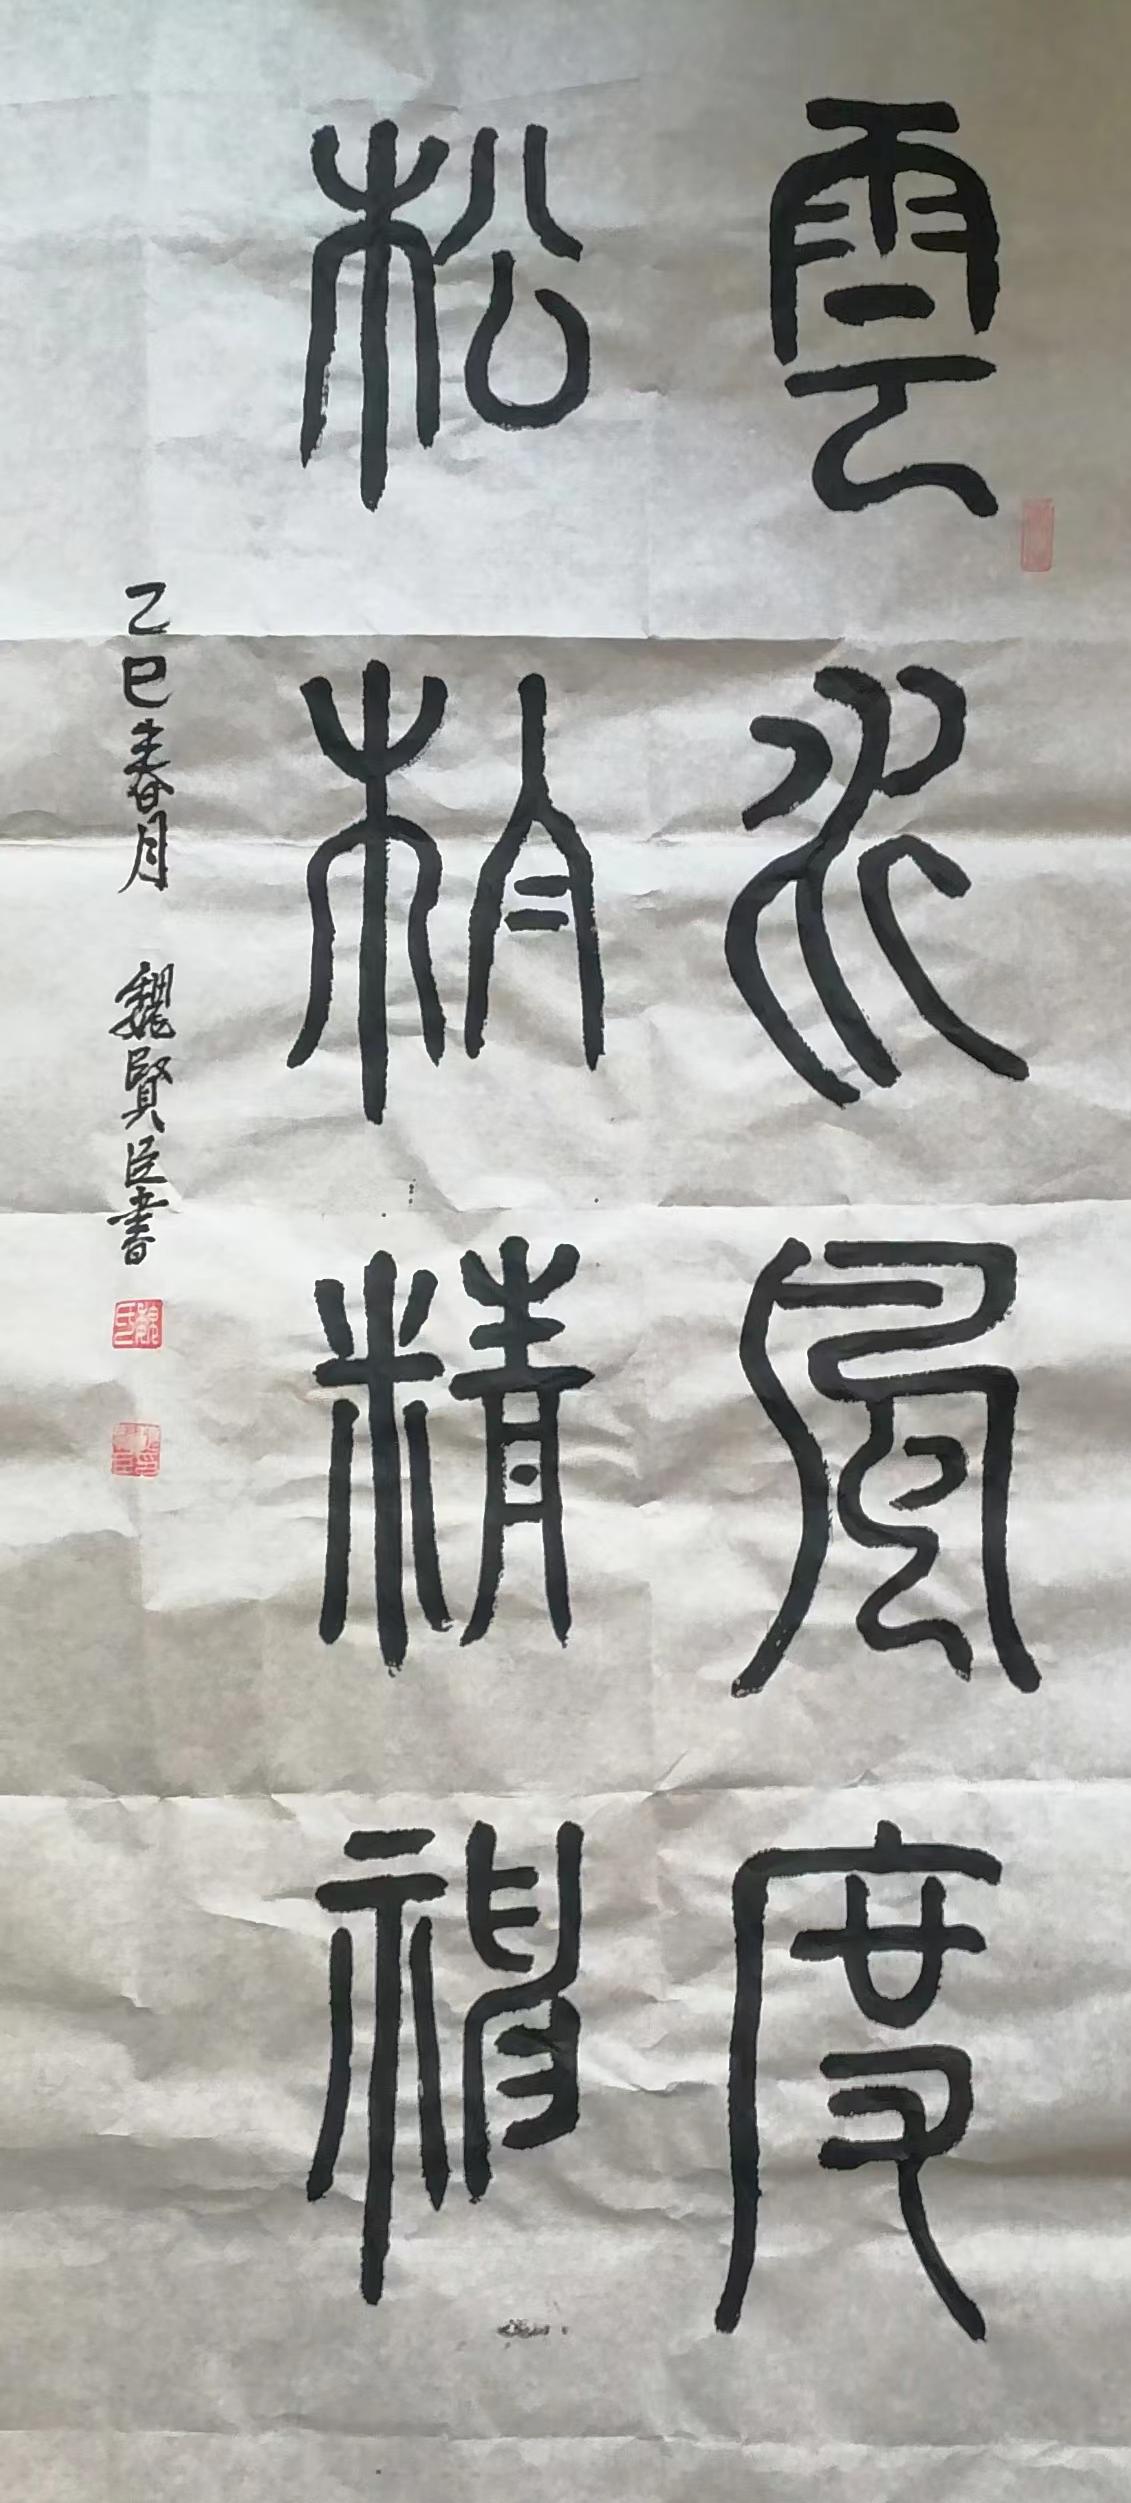 雲水風度
松柏精神
乙巳春月 魏賢臣書